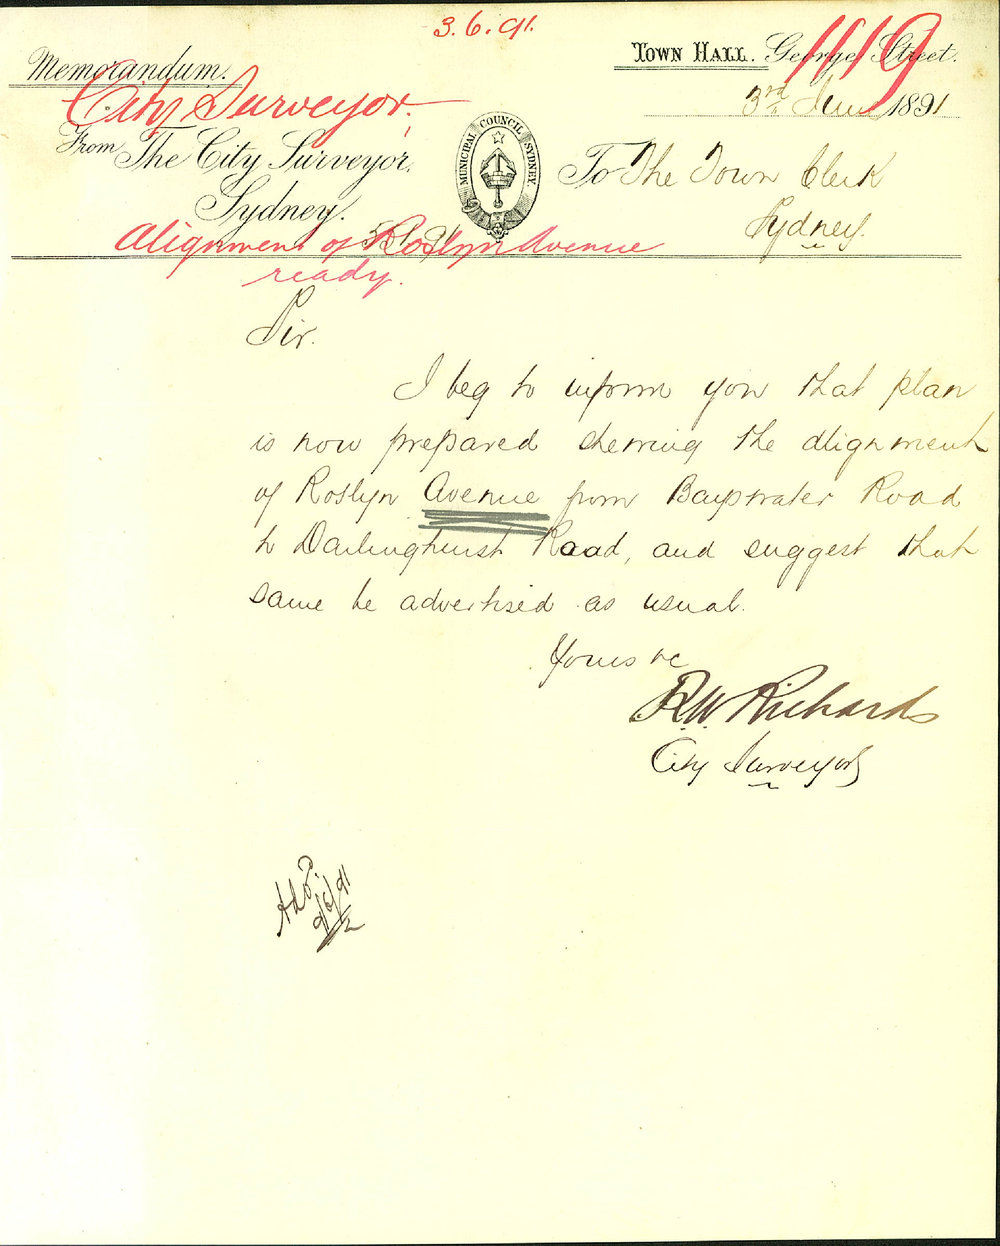 3.6.91.
1119
Memorandum.
Town Hall. George Street.
City Surveyor.
3rd June 1891
From The City Surveyor,
MUNICIPAL COUNCIL SYDNEY.
To The Town Clerk
Sydney.
Sydney.
Alignment of Roslyn Avenue
ready.
Sir.
I beg to inform you that plan
is now prepared shewing the alignment
of Roslyn Avenue from Bayswater Road
to Darlinghurst Road, and suggest that
same be advertised as usual.
Yours &c
R.W. Richards
City Surveyor
9/6/91